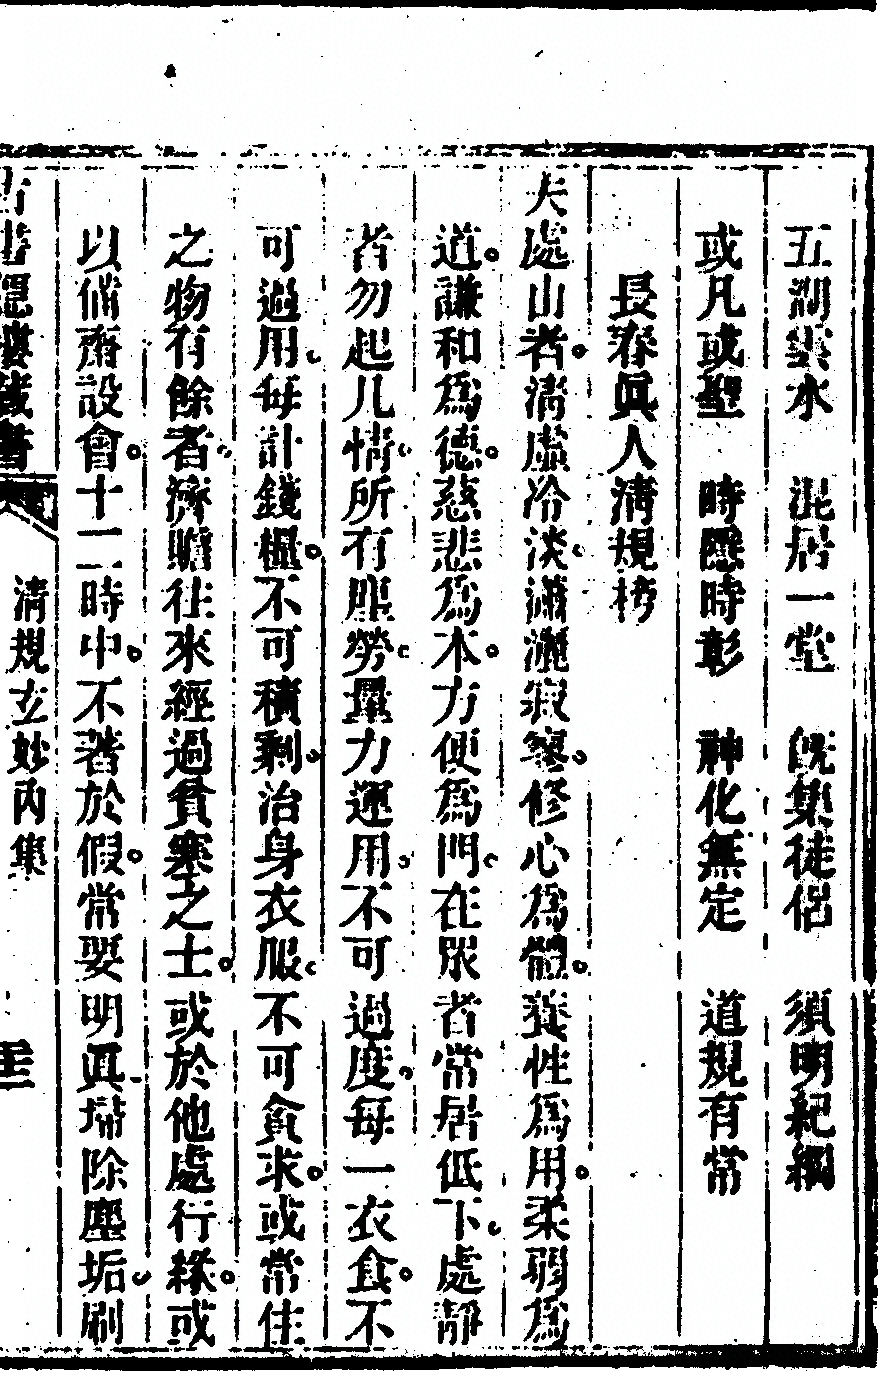 五湖雲水　混居一堂　既集徒侶　須明紀綱
或凡或聖　時隱時彰　神化無定　道規有常
長春眞人淸規榜
夫處山者淸虛冷淡瀟灑寂寥修心爲體養性爲用柔弱爲
道謙和爲德慈悲爲本方便爲門在眾者常居低下處靜
者勿起凡情所有塵勞量力運用不可過度每一衣食不
可過用每計錢糧不可積剩治身衣服不可貪求或常住
之物有餘者濟贍往來經過貧寒之士或於他處行緣或
以備齋設會十二時中不著於假常要明眞掃除塵垢刷
淸規玄妙丙集